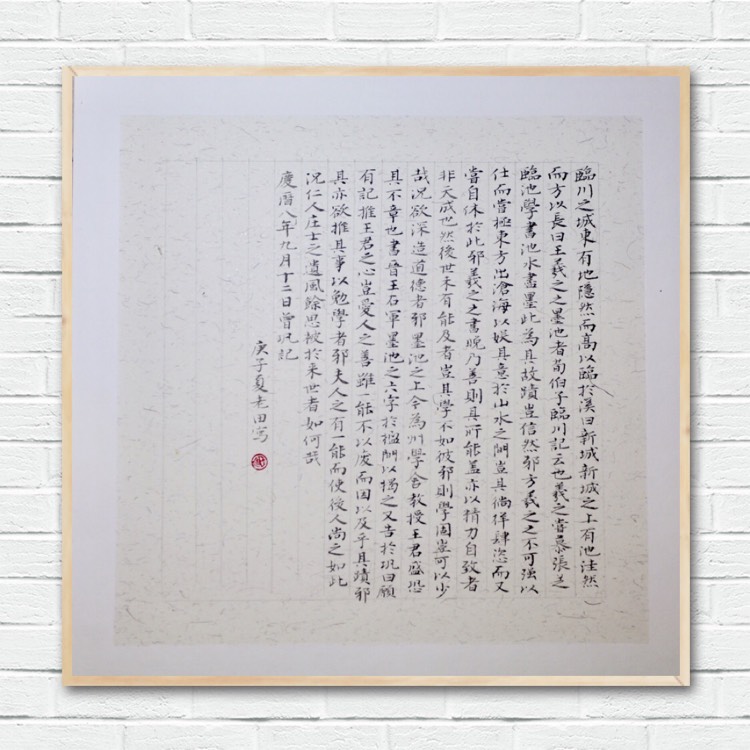 臨川之城東有地隱然而高以臨於溪曰新城新城之上有池洼然
而方以長曰王羲之之墨池者荀伯子臨川記云也羲之嘗慕張芝
臨池學書池水書墨此為其故蹟豈信然邪方羲之之不可強以
仕而嘗極東方出滄海以娛其意於山水之間豈其徜徉肆恣而又
嘗自休於此邪羲之之書晚乃善則其所能蓋亦以精力自致者
非天成也然後世未有能及者豈其學不如彼邪則學固豈可以少
哉況欲深造道德者邪墨池之上今為州學舍教授王君盛恐
其不章也書晉王右軍墨池之六字於楹間以揭之又告於巩曰願
有記推王君之心豈愛人之善雖一能不以廢而因以及乎其蹟邪
其亦欲推其事以勉學者邪夫人之有一能而使後人尚之如此
況仁人庄士之遺風餘思被於来世者如何哉
慶曆八年九月十二日曾巩記
庚子夏老田寫